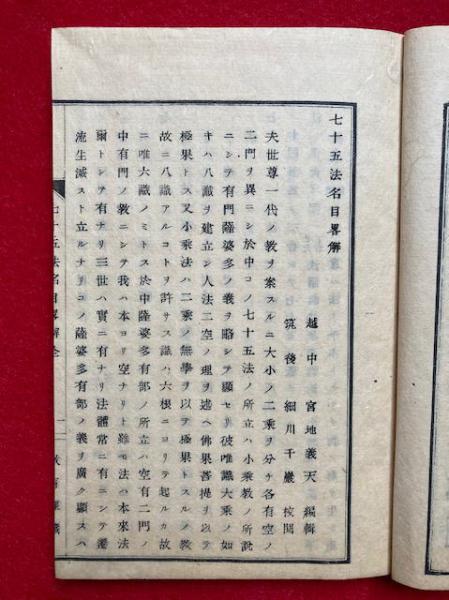 七十五法名目畧解
越中 宮地義天 編輯
筑後 細川千巖 校閲
夫世尊一代ノ教ヲ案スルニ大小ノ二乗ヲ分チ各有空ノ
二門ヲ異ニシ於中コノ七十五法ノ所立ハ小乗教ノ所説
ニシテ有門薩婆多ノ義ヲ略シテ顯セリ彼唯識大乗ノ如
キハ八識ヲ建立シ人法二空ノ理ヲ述ヘ佛果菩提ヲ以テ
極果トス又小乗法ハ二乗ノ無學ヲ以テ極果トスルノ教
故ニ八識アルコトヲ許サス識ハ六根ニヨリテ起ルカ故
ニ唯六識ノミトス於中薩婆多有部ノ所立ハ空有二門ノ
中有門ノ教ニシテ我ハ本ヨリ空ナリト雖モ法ハ本來法
爾トシテ有ナリ三世ハ實ニ有ナリ法體常ニ有ニシテ遷
流生滅スト立ルナリコノ薩婆多有部ノ義ヲ廣ク顯スハ
七十五法名目畧解全